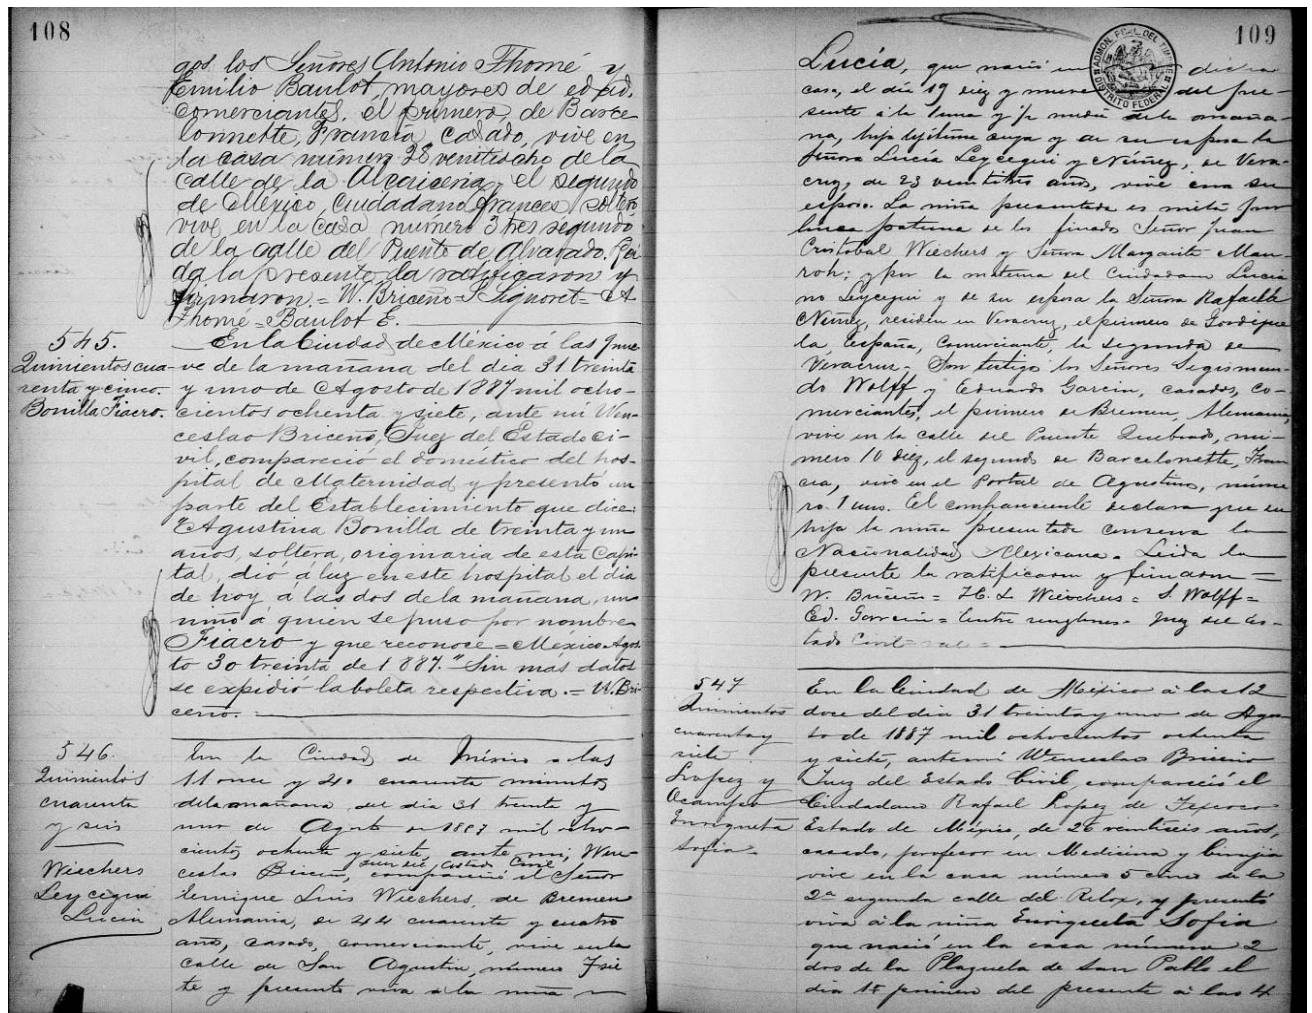 108
gos los Señores Antonio Thomé y
Emilio Baulot, mayores de edad,
Comerciantes, el primero, de Barce
lonnette, Francia, casado, vive en
la casa número 28 veintiocho de la
Calle de la Alcaiceria y el segundo
de México, Ciudadano frances, soltero,
vive en la casa número 3 tres segundo
de la calle del Puente de Alvarado. Leí
da la presente la ratificaron y
firmaron. = W. Briceño = Signoret = A
Thomé = Baulot E.
545.
Quinientos cua-
renta y cinco.
Bonilla Fiacro.
En la Ciudad de México á las 9 nue
ve de la mañana del dia 31 treinta
y uno de Agosto de 1887 mil ocho-
cientos ochenta y siete, ante mi Wen-
ceslao Briceño, Juez del Estado ci-
vil, compareció el doméstico del hos-
pital de Maternidad y presentó un
parte del Establecimiento que dice:
"Agustina Bonilla de treinta y un
años, soltera, originaria de esta Capi-
tal, dió á luz en este hospital el dia
de hoy á las dos de la mañana, un
niño á quien se puso por nombre
Fiacro y que reconoce = México Agos
to 30 treinta de 1887." Sin más datos
se expidió la boleta respectiva. = W. Bri-
ceño.
546.
Quinientos
cuarenta
y seis
Wiechers
Leycegui
Lucia
En la Ciudad de México a las
11 once y 40 cuarenta minutos
de la mañana del dia 31 treinta y
uno de Agosto de 1887 mil ocho-
cientos ochenta y siete, ante mi, Wen-
ceslao Briceño, Juez del Estado Civil compareció el Señor
Enrique Luis Wiechers, de Bremen
Alemania, de 44 cuarenta y cuatro
años, casado, comerciante, vive en la
calle de San Agustin, número 7 sie
te y presenta viva a la niña
109
ADMON. PRAL. DEL TIMBRE
DISTRITO FEDERAL
Lucía, que nació en dicha
casa, el día 19 diez y nueve del pre-
sente á la 1 una y ½ media de la maña-
na, hija legítima suya y de su esposa la
Señora Lucía Leycegui y Núñez, de Vera-
cruz, de 23 veintitres años, vive con su
esposo. La niña presentada es nieta por
linea paterna de los finados Señor Juan
Cristobal Wiechers y Señora Margarita Man-
roh; y por la materna del Ciudadano Lucia
no Leycegui y de su esposa la Señora Rafaela
Núñez, residen en Veracruz, el primero de
la España, Comerciante, la segunda de
Veracruz. Son testigos los Señores Segismun-
do Wolff y Eduardo Garcin, casados, co-
merciantes, el primero de Bremen, Alemania,
vive en la calle del Puente Quebrado, nú-
mero 10 diez, el segundo de Barcelonette, Fran
cia, vive en el Portal de Agustinos, núme
ro 1 uno. El compareciente declara que su
hija la niña presentada conserva la
Nacionalidad Mexicana. Leida la
presente la ratificaron y firmaron =
W. Briceño = H. L. Wiechers = S. Wolff =
Ed. Garcin = Entre renglones = Juez del Es-
tado Civil = vale =
547
Quinientos
cuarenta y
siete
Lopez y
Ocampo
Enriqueta
Sofia
En la Ciudad de México á las 12
doce del dia 31 treinta y uno de Agos
to de 1887 mil ochocientos ochenta
y siete, ante mi Wenceslao Briceño
Juez del Estado Civil, compareció el
Ciudadano Rafael Lopez de Texcoco
Estado de México, de 26 veintiseis años,
casado, profesor en Medicina y Cirujia
vive en la casa número 5 cinco de la
2ª segunda calle del Relox, y presentó
viva á la niña Enriqueta Sofia
que nació en la casa número 2
dos de la Plazuela de San Pablo el
dia 1º primero del presente á las 4